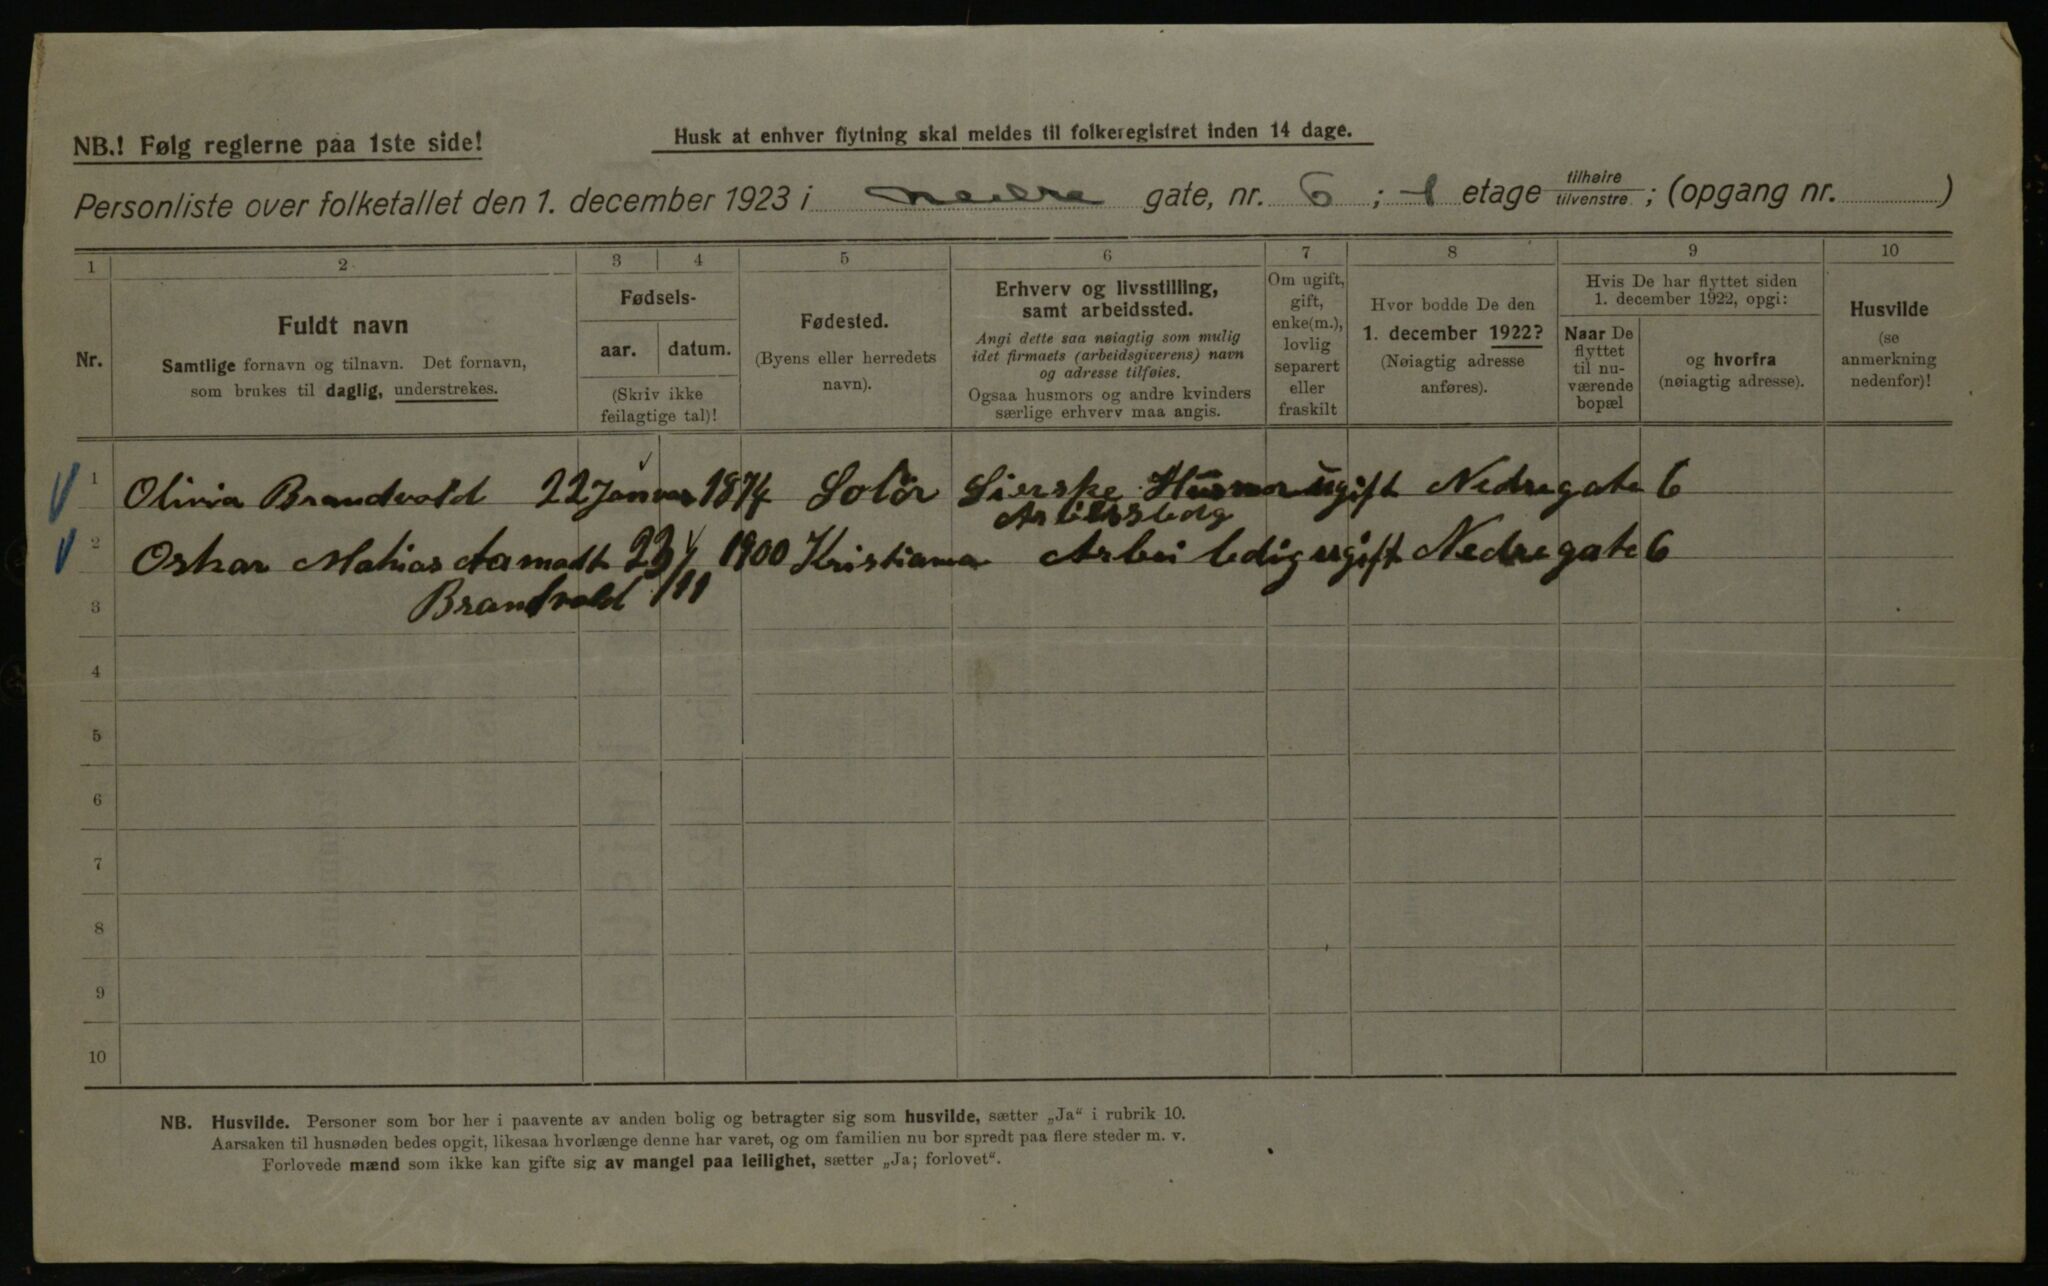 NB.! Følg reglerne paa 1ste side!
Husk at enhver flytning skal meldes til folkeregistret inden 14 dage.
Personliste over folketallet den 1. december 1923 i Nedre gate, nr. 6 ; 1 etage tilhøire tilvenstre ; (opgang nr. )
1 2 3 4 5 6 7 8 9 10
Nr.
Fuldt navn
Samtlige fornavn og tilnavn. Det fornavn,
som brukes til daglig, understrekes.
Fødsels-
aar. datum.
(Skriv ikke
feilagtige tal)!
Fødested.
(Byens eller herredets
navn).
Erhverv og livsstilling,
samt arbeidssted.
Angi dette saa nøiagtig som mulig
idet firmaets (arbeidsgiverens) navn
og adresse tilføies.
Ogsaa husmors og andre kvinders
særlige erhverv maa angis.
Om ugift,
gift,
enke(m.),
lovlig
separert
eller
fraskilt
Hvor bodde De den
1. december 1922?
(Nøiagtig adresse
anføres).
Hvis De har flyttet siden
1. december 1922, opgi:
Naar De
flyttet
til nu-
værende
bopæl
og hvorfra
(nøiagtig adresse).
Husvilde
(se
anmerkning
nedenfor)!
1 Olivia Brandvold 22 Januar 1874 Solör Husmor ugift Nedregate 6
2 Oskar Mathias 1900 Kristiania Arbei ledig ugift Nedregate 6
3 Brandvold 11
4
5
6
7
8
9
10
NB. Husvilde. Personer som bor her i paavente av anden bolig og betragter sig som husvilde, sætter „Ja“ i rubrik 10.
Aarsaken til husnøden bedes opgit, likesaa hvorlænge denne har varet, og om familien nu bor spredt paa flere steder m. v.
Forlovede mænd som ikke kan gifte sig av mangel paa leilighet, sætter „Ja; forlovet“.